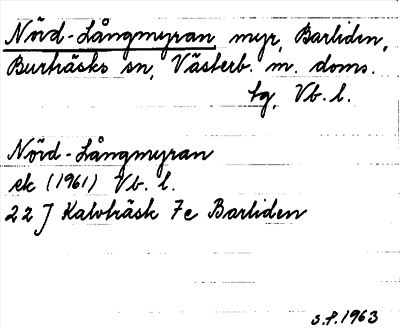 Nörd-Långmyran myr, Barliden,
Burträsks sn, Västerb. m. doms.
tg, Vb. l.
Nörd-Långmyran
ek (1961) Vb. l.
22 J Kalvträsk 7e Barliden
s.f. 1963